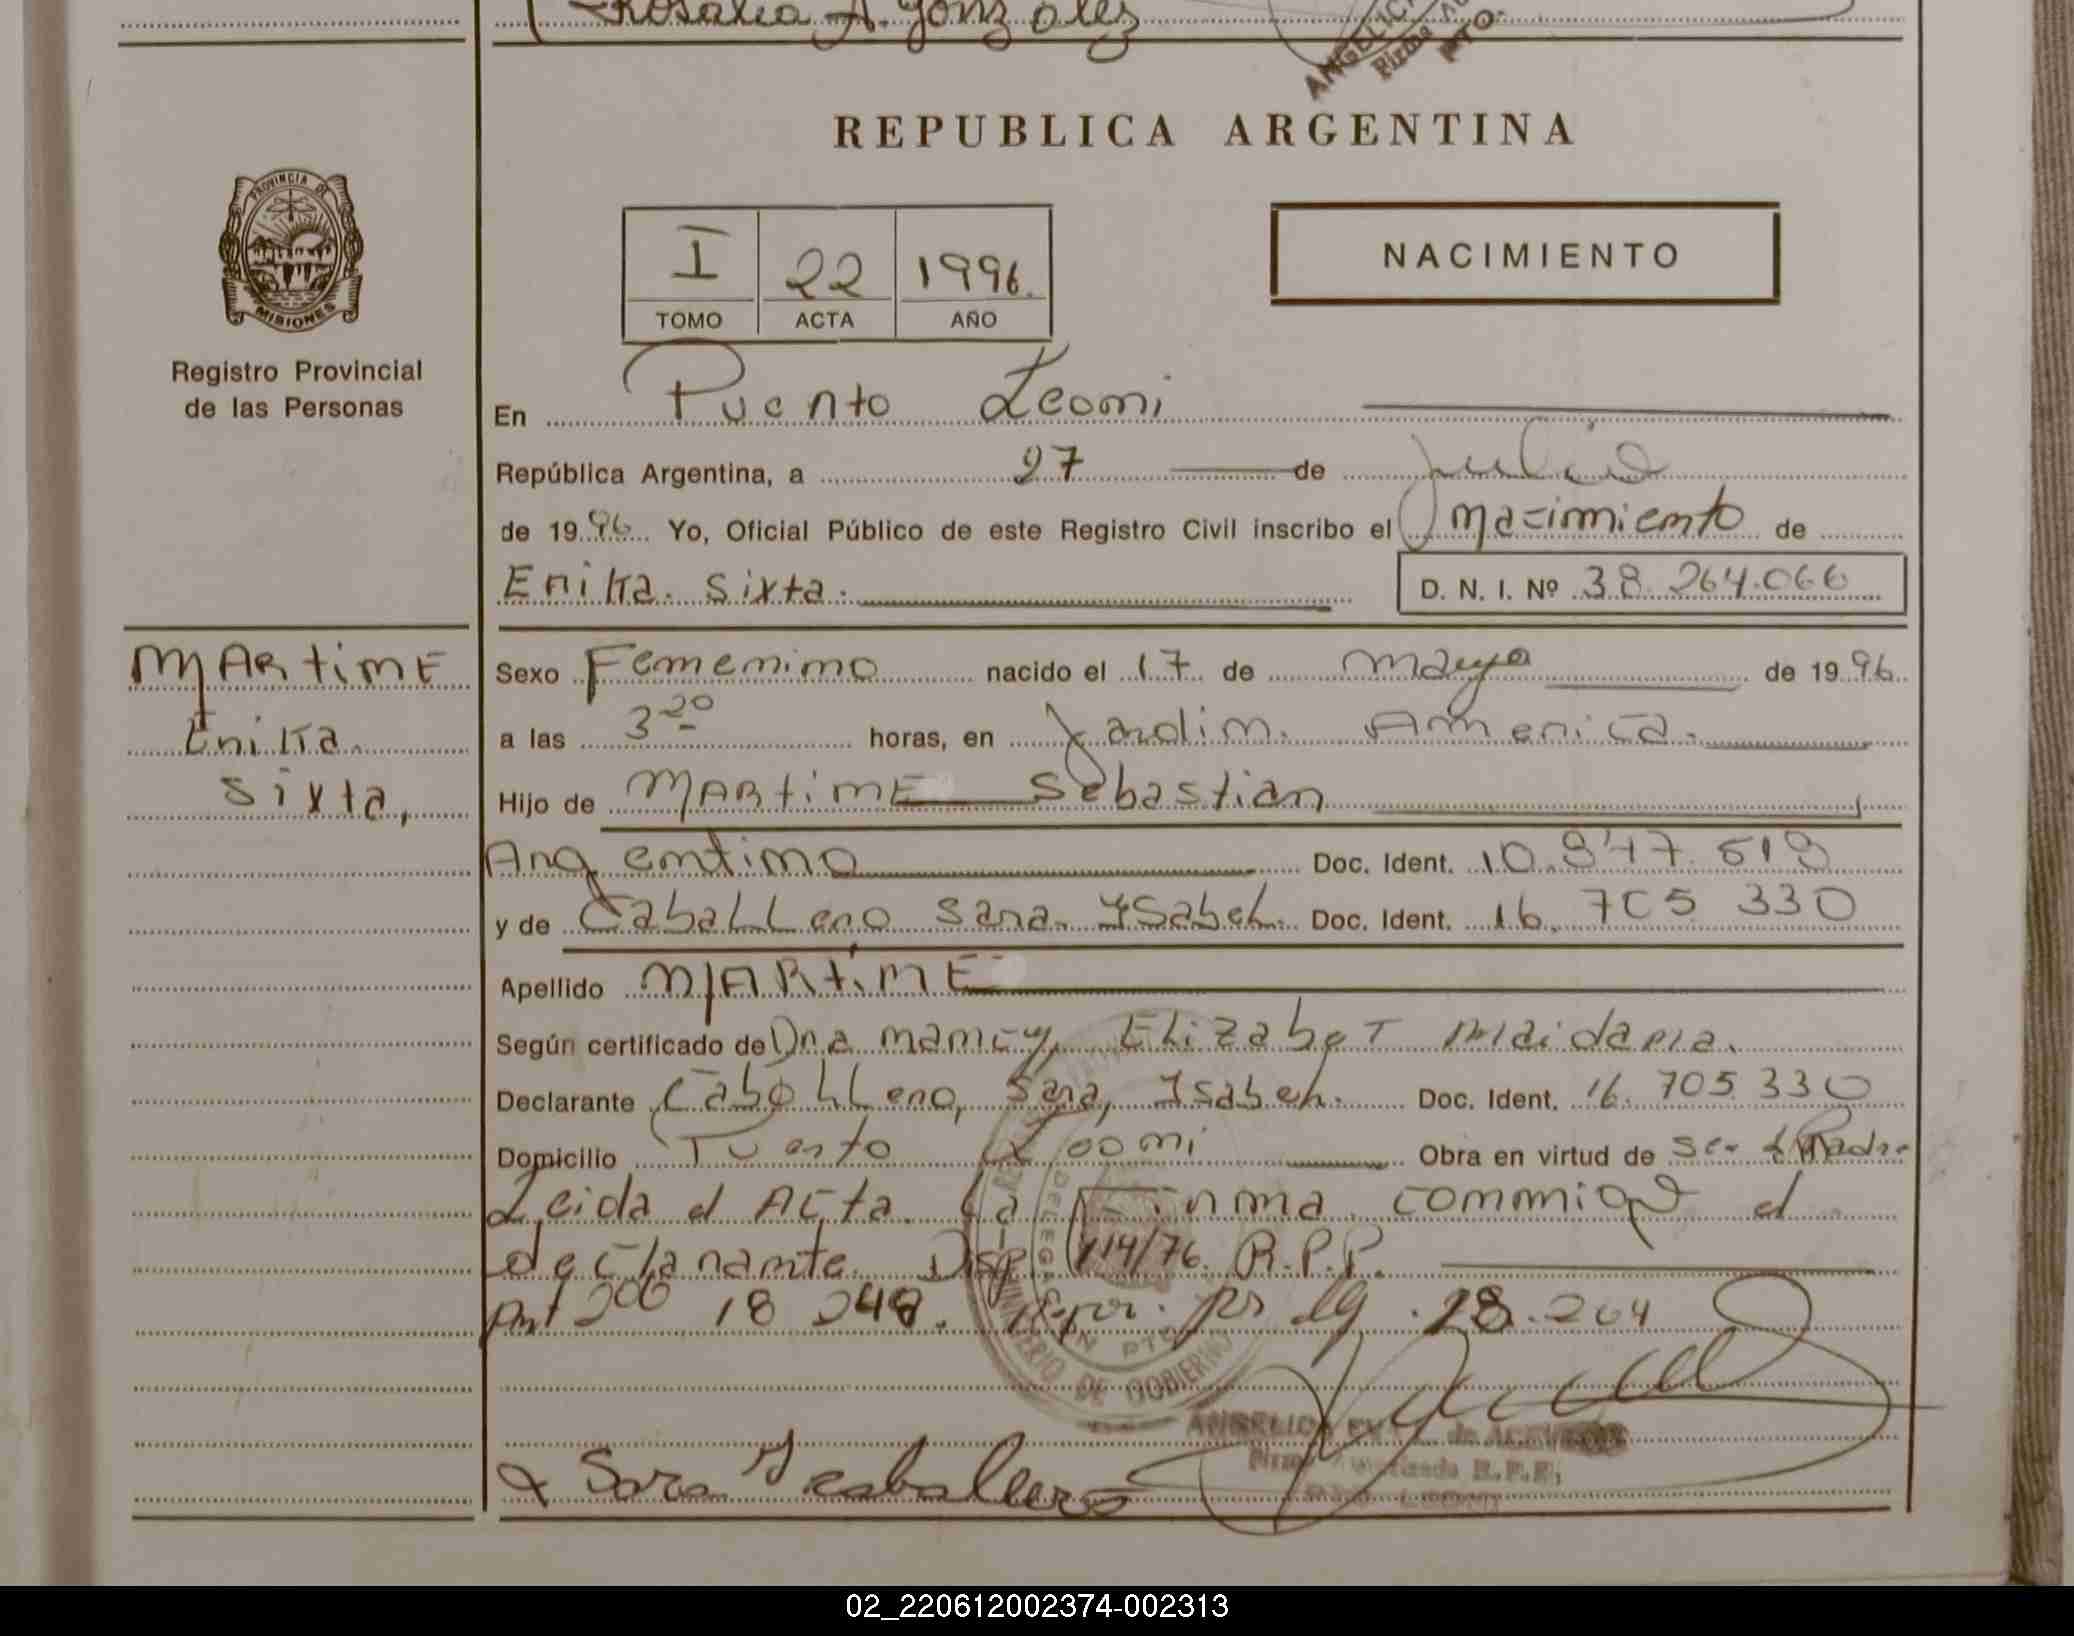 Rosalia A. Gonzalez
ANGELICA
Firma
PTO.
REPUBLICA ARGENTINA
PROVINCIA DE
MISIONES
Registro Provincial
de las Personas
I 22 1996
TOMO ACTA AÑO
NACIMIENTO
En Puerto Leoni
República Argentina, a 27 de Julio
de 1996 Yo, Oficial Público de este Registro Civil inscribo el nacimiento de
Erika Sixta. D. N. I. Nº 38.264.066
MARtinE
Erika
Sixta,
Sexo Femenino nacido el 17 de mayo de 1996
a las 3 20 horas, en Jardin America.
Hijo de MARtinE Sebastian
Argentino Doc. Ident. 10.947.519
y de Caballero Sara Ysabel. Doc. Ident. 16.705 330
Apellido MARtinE
Según certificado de Dra nancy Elizabet Maidana.
Declarante Caballero, Sara, Isabel. Doc. Ident. 16.705 330
Domicilio Puerto Leoni Obra en virtud de Ser Madre
Leida el Acta la Firma conmigo el
declarante Disp 114/76 R.P.P.
18 248. 28.264
MINISTERIO DE GOBIERNO
ANGELICA de ACEVEDO
Firma Autorizada R.P.P.
Sara Y caballero
02_220612002374-002313